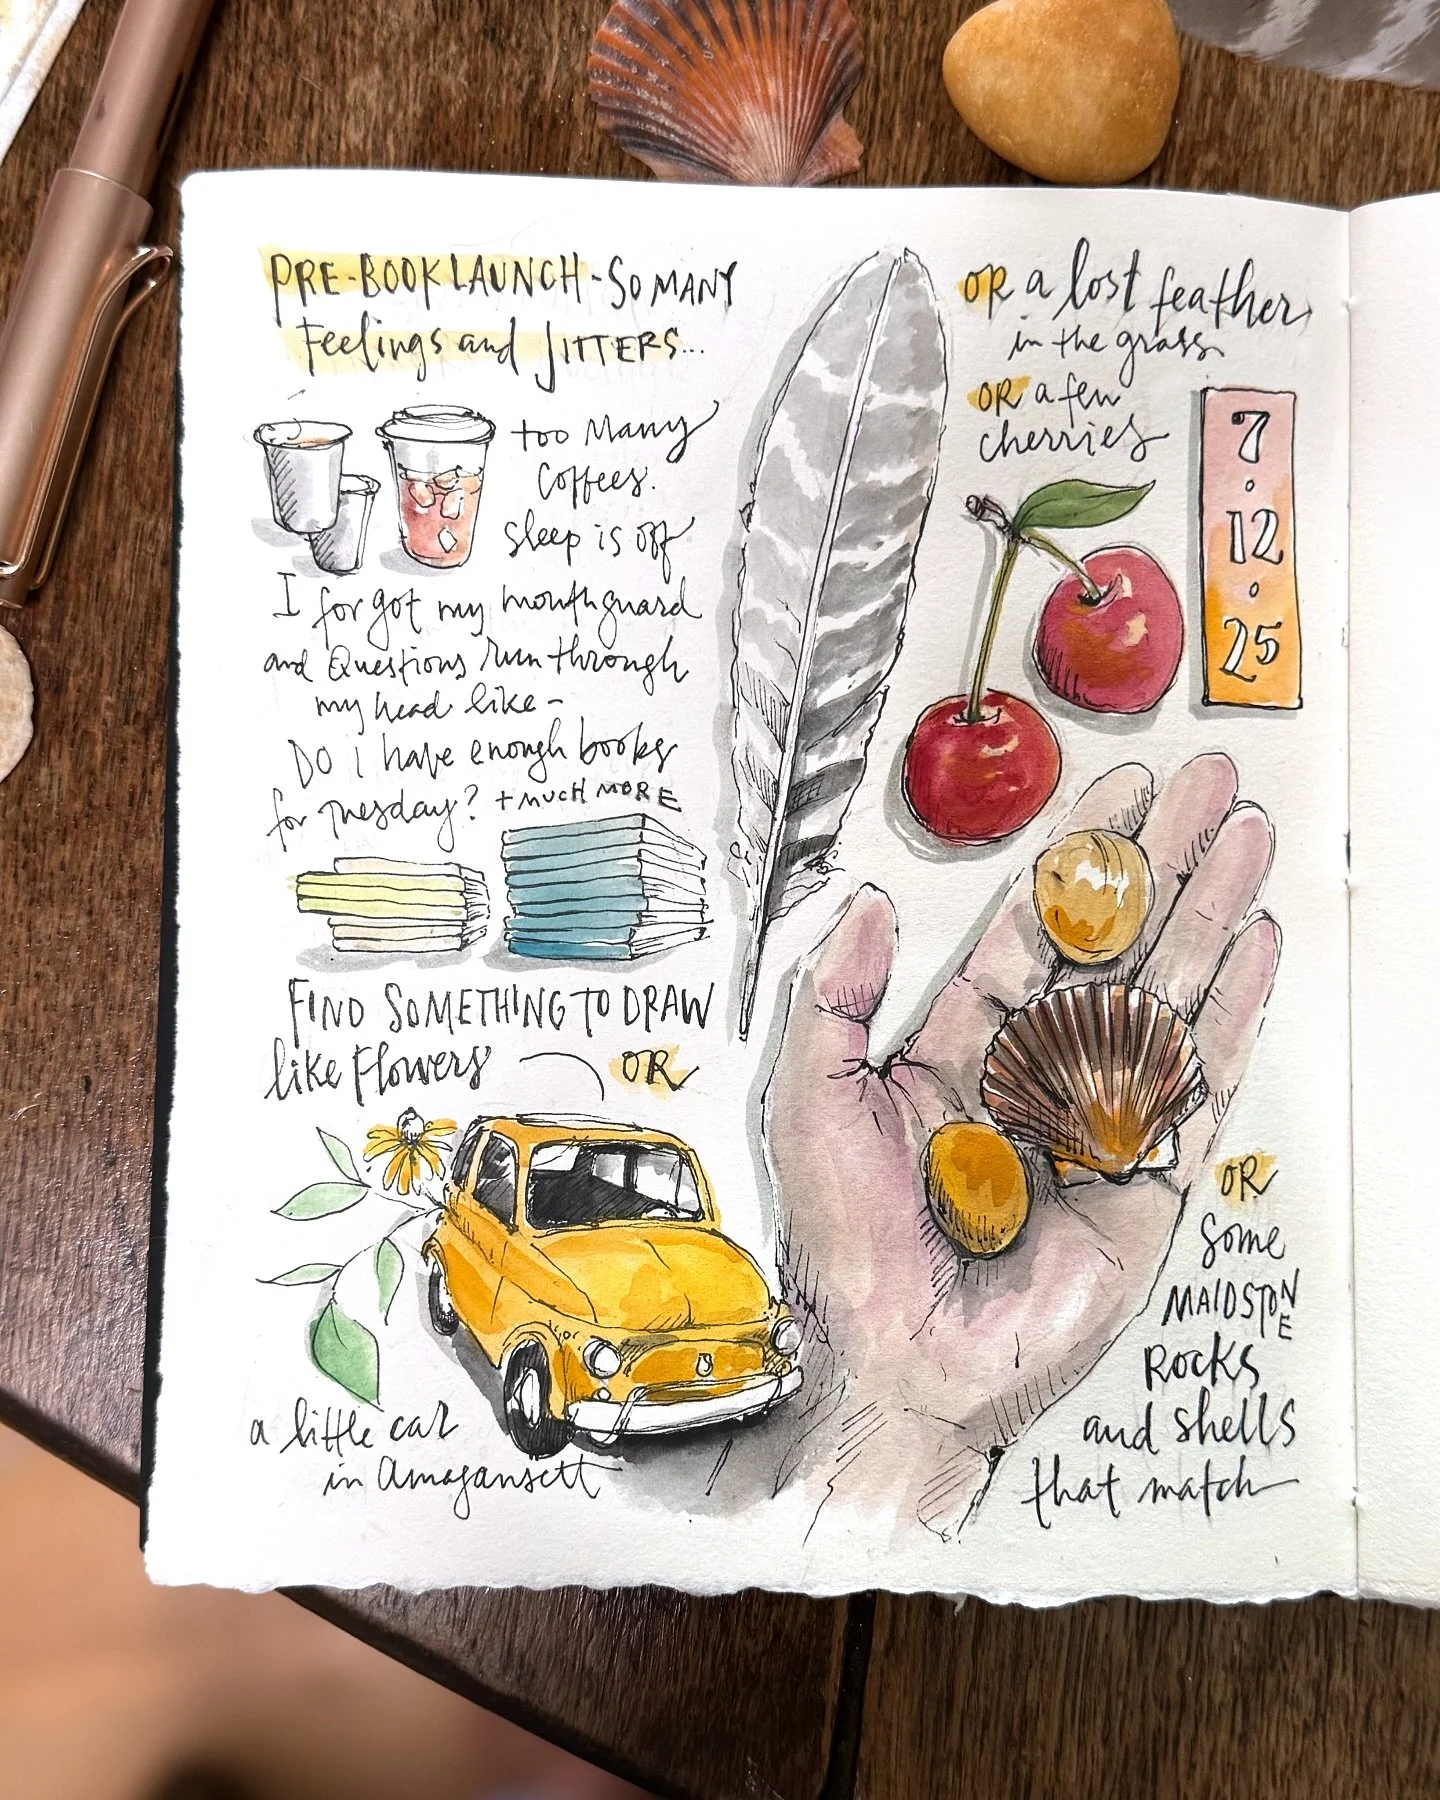 PRE-BOOK LAUNCH - SO MANY
Feelings and JITTERS...
too Many
Coffees.
sleep is off
I forgot my mouthguard
and Questions run through
my head like -
Do i have enough books
for Tuesday? + MUCH MORE
FIND SOMETHING TO DRAW
like Flowers OR
a little car
in Amagansett
OR a lost feather
in the grass
OR a few
cherries
7
.
12
.
25
OR
Some
MAIDSTONE
ROCKS
and shells
that match